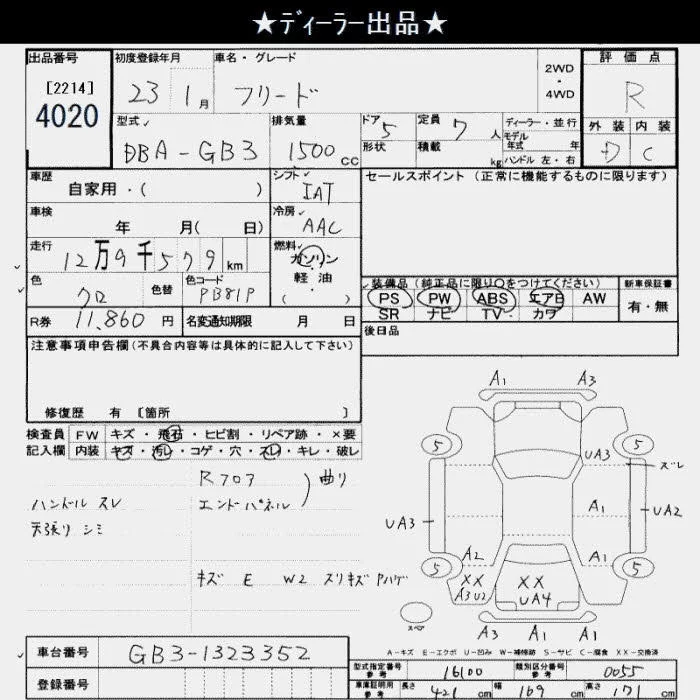 ★ディーラー出品★
出品番号 初度登録年月 車名・グレード 評価点
[2214] 23 1月 フリード 2WD・4WD R
4020
型式 排気量 ドア 5 定員 7 人 ディーラー・並行 外装 内装
DBA-GB3 1500cc 形状 積載 kg モデル年式 年 D C
ハンドル 左・右
車歴 シフト セールスポイント (正常に機能するものに限ります)
自家用・( ) IAT
車検 冷房
年 月( 日) AAC
走行 燃料
12万9千579km ガソリン
軽油
( )
色 色替 色コード 装備品 (純正品に限り○をつけてください) 新車保証書
クロ PB81P PS PW ABS エアB AW 有・無
SR ナビ TV カワ
R券 11,860円 名変通知期限 月 日
後日品
注意事項申告欄(不具合内容等は具体的に記入して下さい)
修復歴 有 〔箇所 〕
検査員 FW キズ・飛石・ヒビ割・リペア跡・×要
記入欄 内装 キズ・汚レ・コゲ・穴・スレ・キレ・破レ
Rフロア
ハンドル スレ エンドパネル 曲り
天張り シミ
キズ E W2 スリキズ アハゲ
A1 A3
5 5
UA3 ズレ
A1
UA3 UA2
A2 A1
5 5
XX XX
A3U2 UA4
スペア
A3 A1 A1
A-キズ E-エクボ U-凹み W-補修跡 S-サビ C-腐食 XX-交換済
車台番号 GB3-1323352
型式指定番号 参考 16100 類別区分番号 参考 0055
登録番号
車庫証明用 参考 長さ 421cm 幅 169cm 高さ 171cm